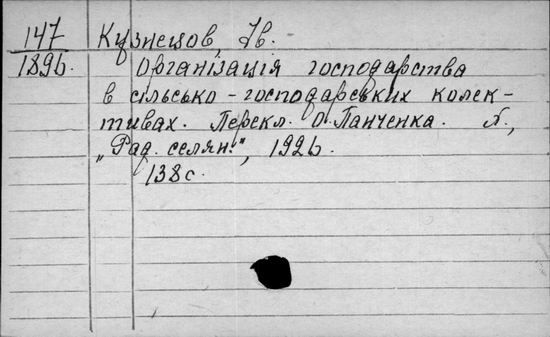 147 Кузнецов, Ів.
1896. Організація господарства
в сільсько-господарських колек-
тивах. Перекл. О. Панченка. Х.,
„Рад. селян.", 1926.
138 с.